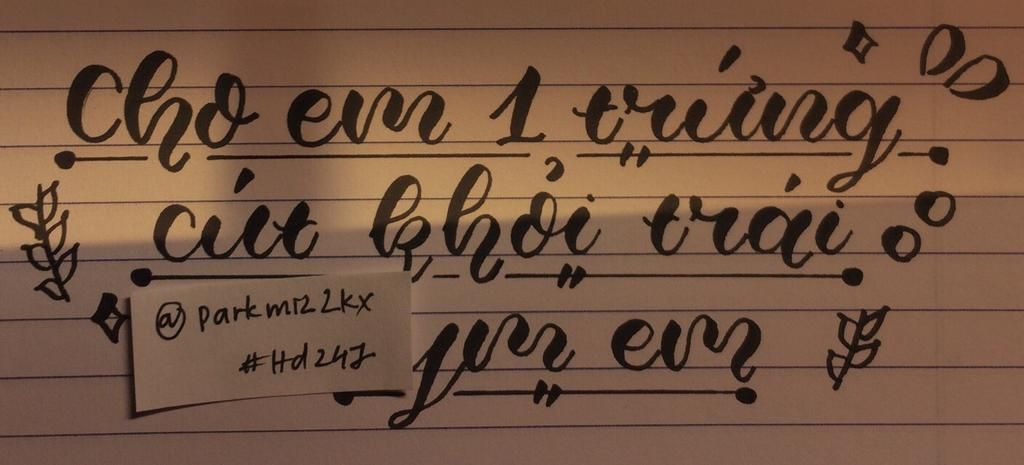 Cho em 1 trứng
cút khỏi trái
ym em
#Hd247